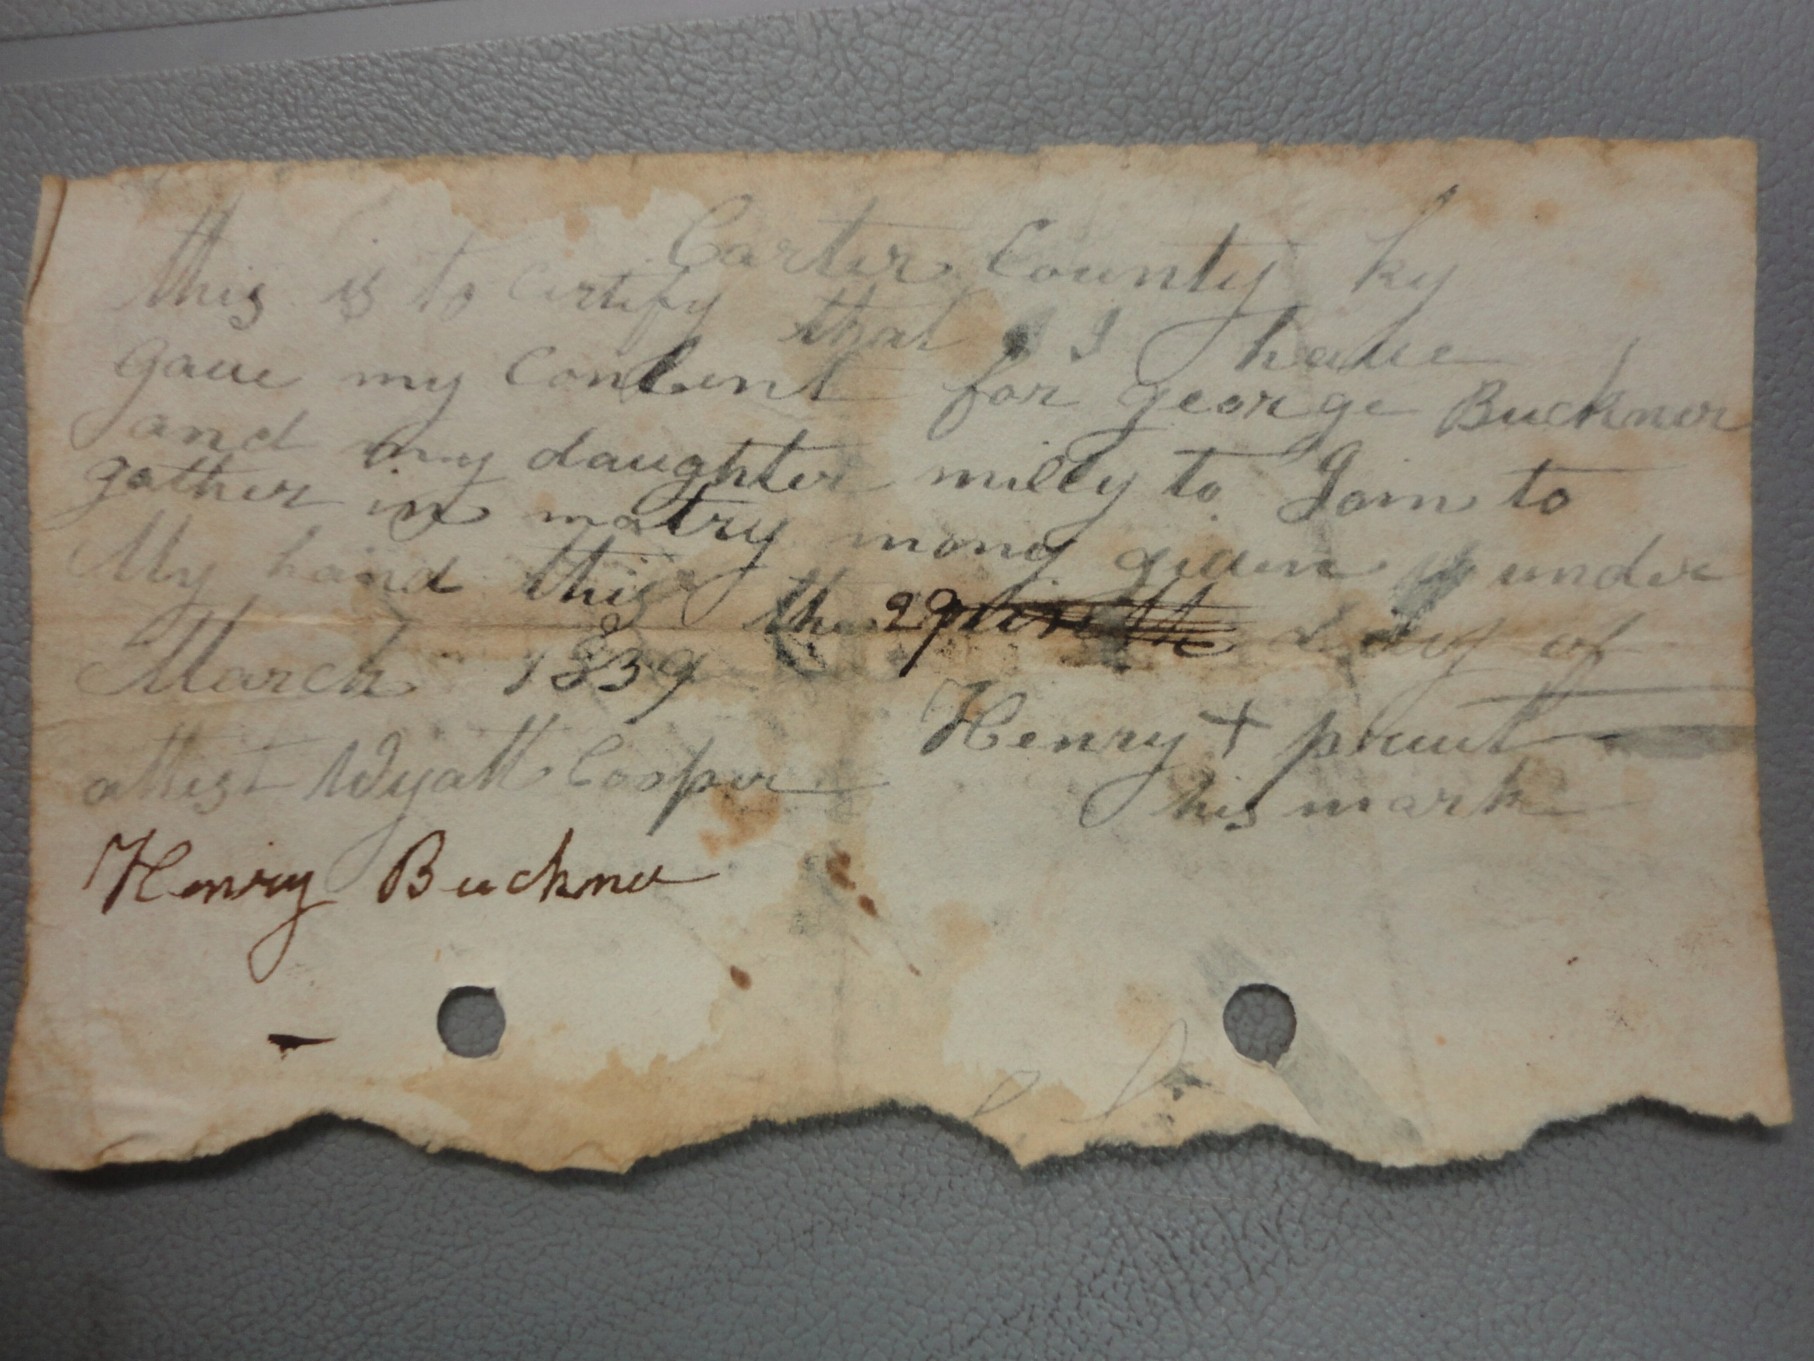 Carter County Ky
this is to certify that I have
gave my Consent for george Buckner
and my daughter milly to Join to
gather in matry mony given under
My hand this the 29 day of
March 1839
Henry + pruit
his mark
attest Wyatt Cooper
Henry Buckner